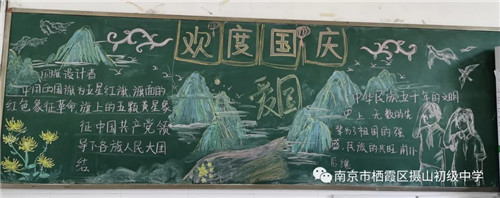 欢度国庆
爱国
国旗设计者
中国的国旗为五星红旗,旗面的
红色象征革命,旗上的五颗黄星象
征中国共产党领
导下各族人民大团
结
中华民族五千年的文明
史上,无数的先
辈为了祖国的强
盛,民族的兴旺,前仆
后继
南京市栖霞区摄山初级中学